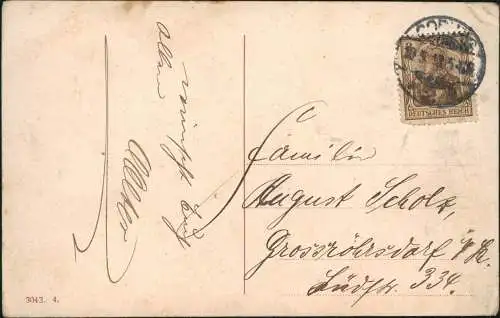 Allen
wünscht Euch
Familie
August Scholz,
Grossröhrsdorf i/S.
Südstr. 334.
DEUTSCHES REICH
3043. 4.